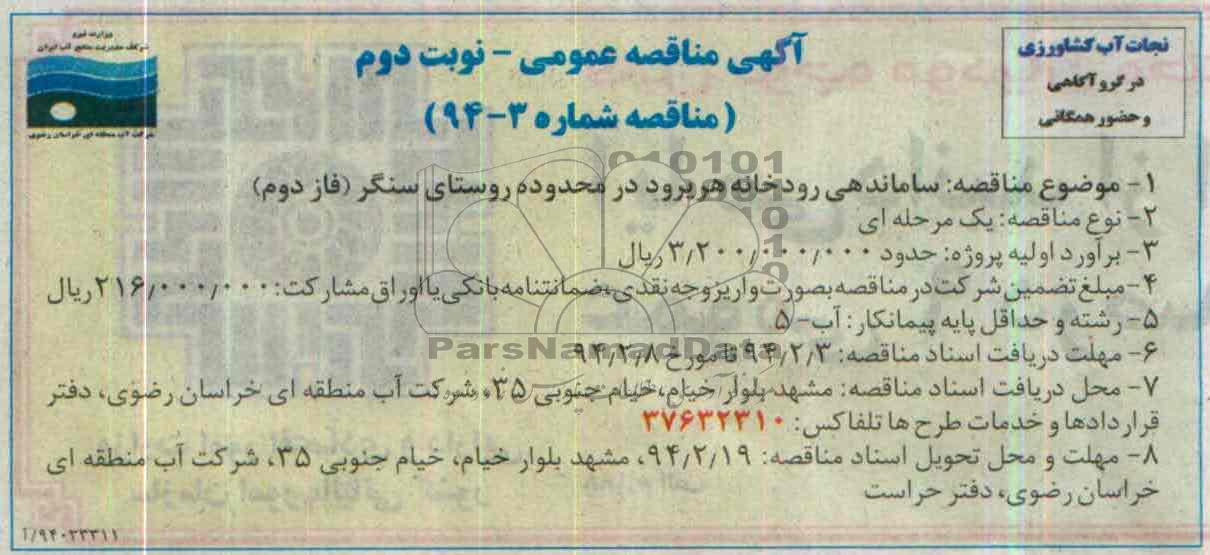 وزارت نیرو
شرکت مدیریت منابع آب ایران
شرکت آب منطقه ای خراسان رضوی
نجات آب کشاورزی
در گرو آگاهی
و حضور همگانی
آگهی مناقصه عمومی - نوبت دوم
(مناقصه شماره ۳-۹۴)
۱- موضوع مناقصه: ساماندهی رودخانه هریرود در محدوده روستای سنگر (فاز دوم)
۲- نوع مناقصه: یک مرحله ای
۳- برآورد اولیه پروژه: حدود ۳٫۲۰۰٫۰۰۰٫۰۰۰ ریال
۴- مبلغ تضمین شرکت در مناقصه بصورت واریز وجه نقدی، ضمانتنامه بانکی یا اوراق مشارکت: ۲۱۶٫۰۰۰٫۰۰۰ ریال
۵- رشته و حداقل پایه پیمانکار: آب- ۵
۶- مهلت دریافت اسناد مناقصه: ۹۴٫۲٫۳ تا مورخ ۹۴٫۲٫۸
۷- محل دریافت اسناد مناقصه: مشهد بلوار خیام، خیام جنوبی ۳۵، شرکت آب منطقه ای خراسان رضوی، دفتر
قراردادها و خدمات طرح ها تلفاکس: ۳۷۶۳۲۳۱۰
۸- مهلت و محل تحویل اسناد مناقصه: ۹۴٫۲٫۱۹، مشهد بلوار خیام، خیام جنوبی ۳۵، شرکت آب منطقه ای
خراسان رضوی، دفتر حراست
۹۴۰۲۳۳۱۱/آ
ParsNamadData